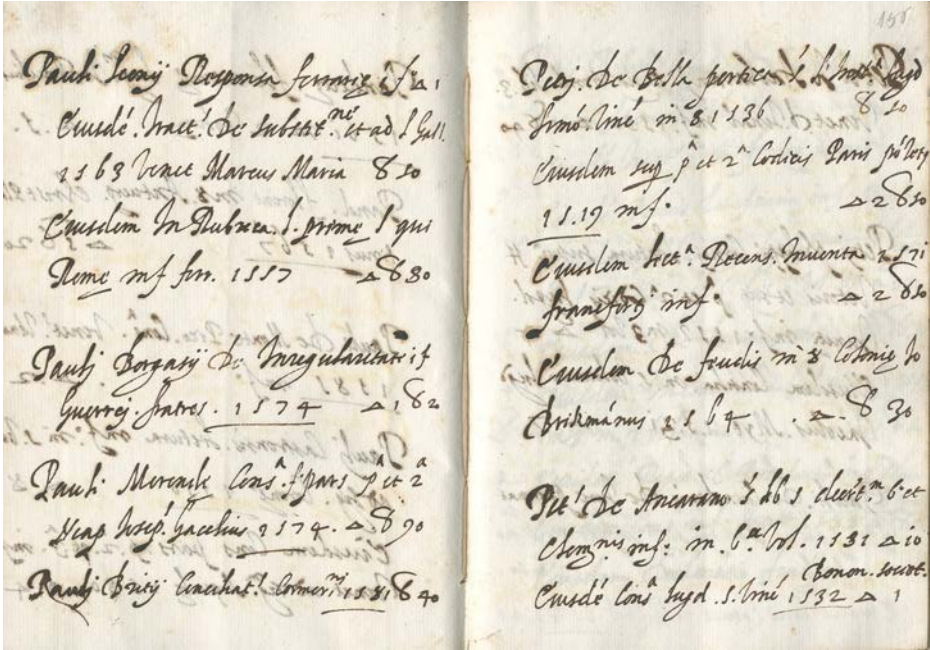 Pauli Leonij Responsa ferrarię i f Δ 1
Eiusdē. tract. De substit.nē et ad l Gall.
1563 Venet Marcus Maria 8 50
Eiusdem In Rubrica. l. prime l qui
Rome inf ferr. 1557 Δ 8 30
Pauli Borgasij De Irregularitate i f
Guerrej. fratres. 1574 Δ 1 8 2
Pauli Merende Cons.a f. pars p.a et 2.a
Neap Iosep. Cacchius 1574. Δ. 8 70
Pauli Britij Conciliat. 1581 8 40
155
Petri. De Bella pertica
Simō. Vinc in 8 1536 8 50
Eiusdem sup p.a et 2.a Codicis Paris
1519 inf. Δ 2 8 50
Eiusdem lect.a Recens. Inventa 1571
francfurt inf Δ 2 8 50
Eiusdem De feudis in 8 Colonię Io
Brikmānus 1564 Δ. 8 30
Pet. De Ancarano decret.m 6 et
Clem.nis inf. in. 6.a vol. 1531 Δ 10
Bonon. societ.
Eiusdē Cons.a Lugd. s. Vinc 1532 Δ 1